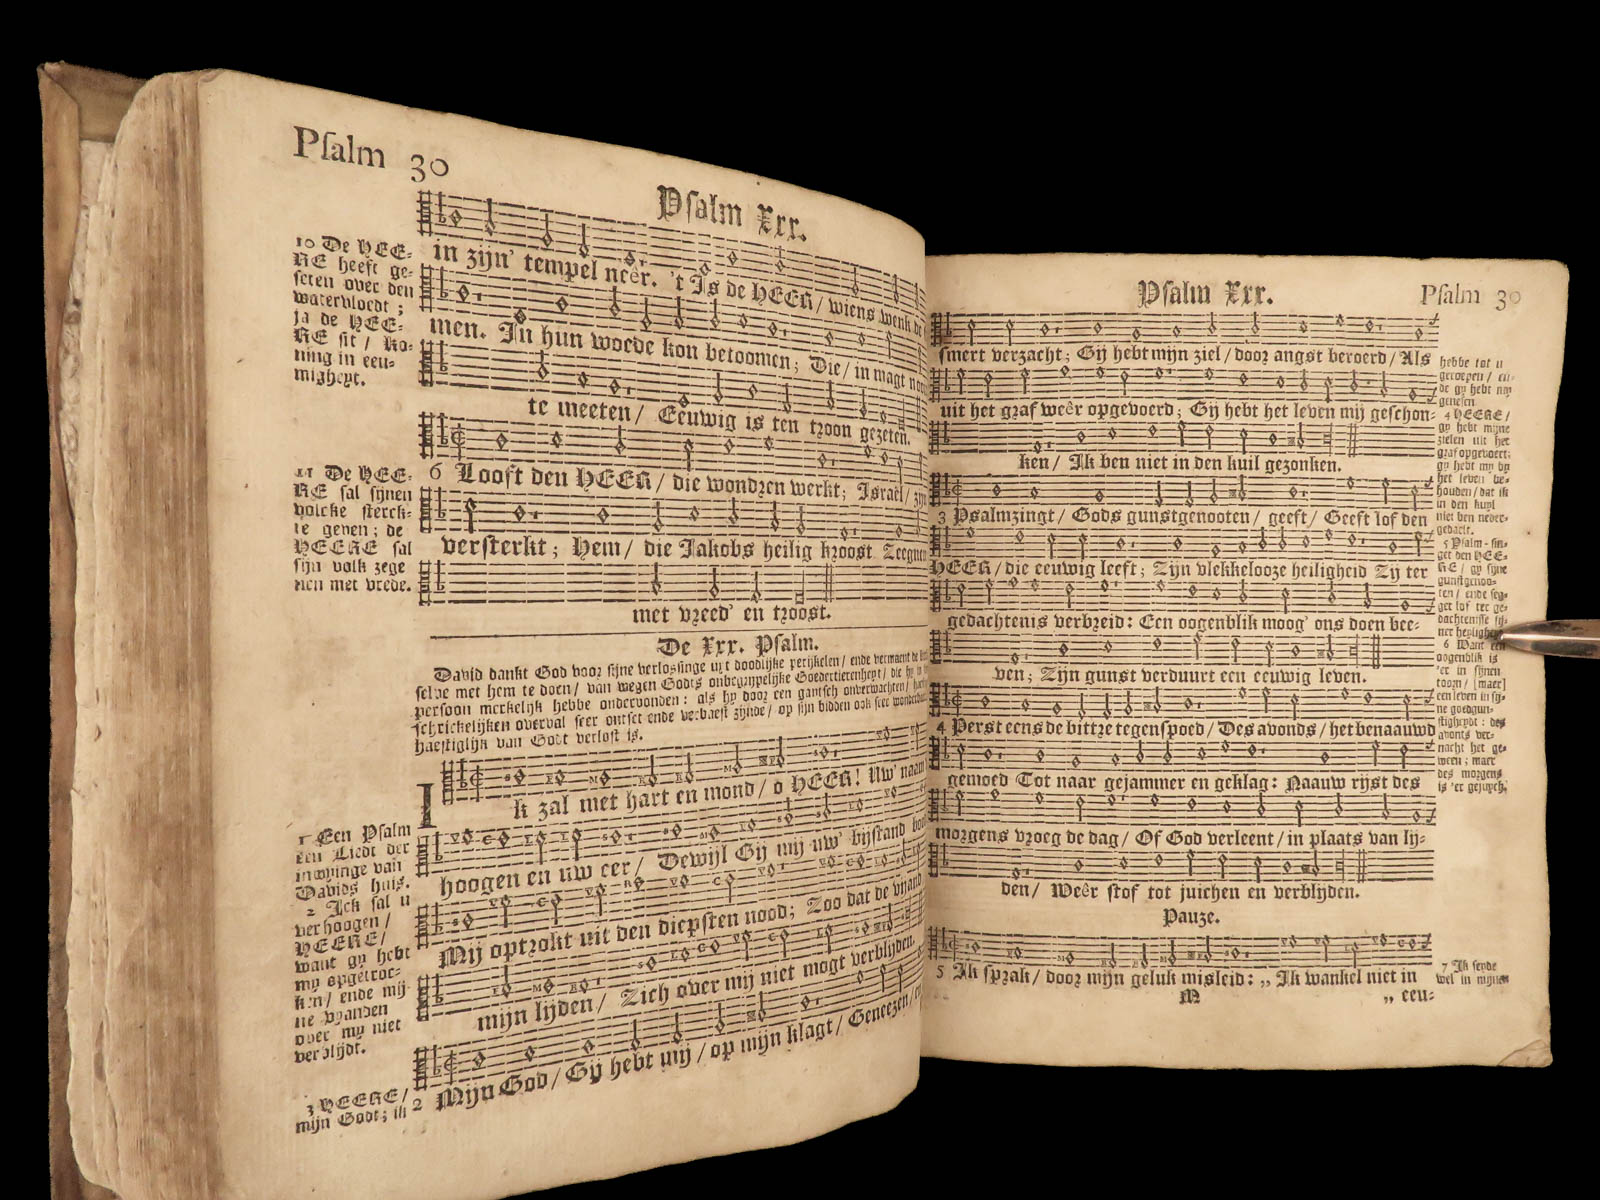 Psalm 30
Psalm Xxx.
10 De HEE-
RE heeft ge-
seten over den
watervloedt;
ja de HEE-
RE sit / Ko-
ning in eeu-
wigheyt.
in zijn' tempel neêr. 't Is de HEER / wiens wenk de
men. In hun woede kon betoomen; Die / in magt
te meeten / Eeuwig is ten troon gezeten.
11 De HEE-
RE sal sijnen
volcke sterck-
te geven; de
HEERE sal
sijn volk zege
nen met vrede.
6 Looft den HEER / die wondren werkt; Israël /
versterkt; Hem / die Jakobs heilig kroost Zeegnen
met vreed' en troost.
De Xxx. Psalm.
David dankt God voor sijne verlossinge uyt doodlijke perijkelen / ende vermaent de
selve met hem te doen / van wegen Godts onbegrijpelijke Goedertierenheyt / die hy in
persoon merkelijk hebbe ondervonden: als hy door een gantsch onverwachten /
schrickelijken overval seer ontset ende verbaest zijnde / op sijn bidden ook seer
haestiglijk van Godt verlost is.
Ik zal met hart en mond / o HEER! Uw' naam
hoogen en uw eer / Dewijl Gij mij uw' bijstand
Mij optrokt uit den diepsten nood; Zoo dat de vijand
mijn lijden / Zich over mij niet mogt verblijden.
2 Mijn God / Gij hebt mij / op mijn klagt / Geneezen /
1 Een Psalm
een Liedt der
inwijinge van
Davids huis.
2 Ick sal u
verhoogen /
HEERE /
want gy hebt
my opgetroc-
ken / ende mij-
ne vyanden
over my niet
verblijdt.
3 HEERE /
mijn Godt; ik
Psalm Xxx.
Psalm 30
smert verzacht; Gij hebt mijn ziel / door angst beroerd / Als
uit het graf weêr opgevoerd; Gij hebt het leven mij geschon-
ken / Ik ben niet in den kuil gezonken.
3 Psalmzingt / Gods gunstgenooten / geeft / Geeft lof den
HEER / die eeuwig leeft; Zijn vlekkelooze heiligheid Zij ter
gedachtenis verbreid: Een oogenblik moog' ons doen bee-
ven; Zijn gunst verduurt een eeuwig leven.
4 Perst eens de bittre tegenspoed / Des avonds / het benaauwd
gemoed Tot naar gejammer en geklag: Naauw rijst des
morgens vroeg de dag / Of God verleent / in plaats van lij-
den / Weêr stof tot juichen en verblijden.
Pauze.
5 Ik sprak / door mijn geluk misleid: „ Ik wankel niet in
M
„ eeu-
hebbe tot u
geroepen / en-
de gy hebt my
genesen.
4 HEERE /
gy hebt mijne
zielen uit het
graf opgevoert;
gy hebt my by
het leven be-
houden / dat ik
in den kuyl
niet ben neder-
gedaelt.
5 Psalm-sin-
get den HEE-
RE / gy sijne
gunstgenoo-
ten / ende seg-
get lof ter ge-
dachtenisse sij-
ner heyligheyt
6 Want een
oogenblik is
'er in sijnen
toorn / [maer]
een leven in sij-
ne goedgun-
stigheydt: des
avonts ver-
nacht het ge-
ween; maer
des morgens
is 'er gejuych.
7 Ik seyde
wel in mijnen